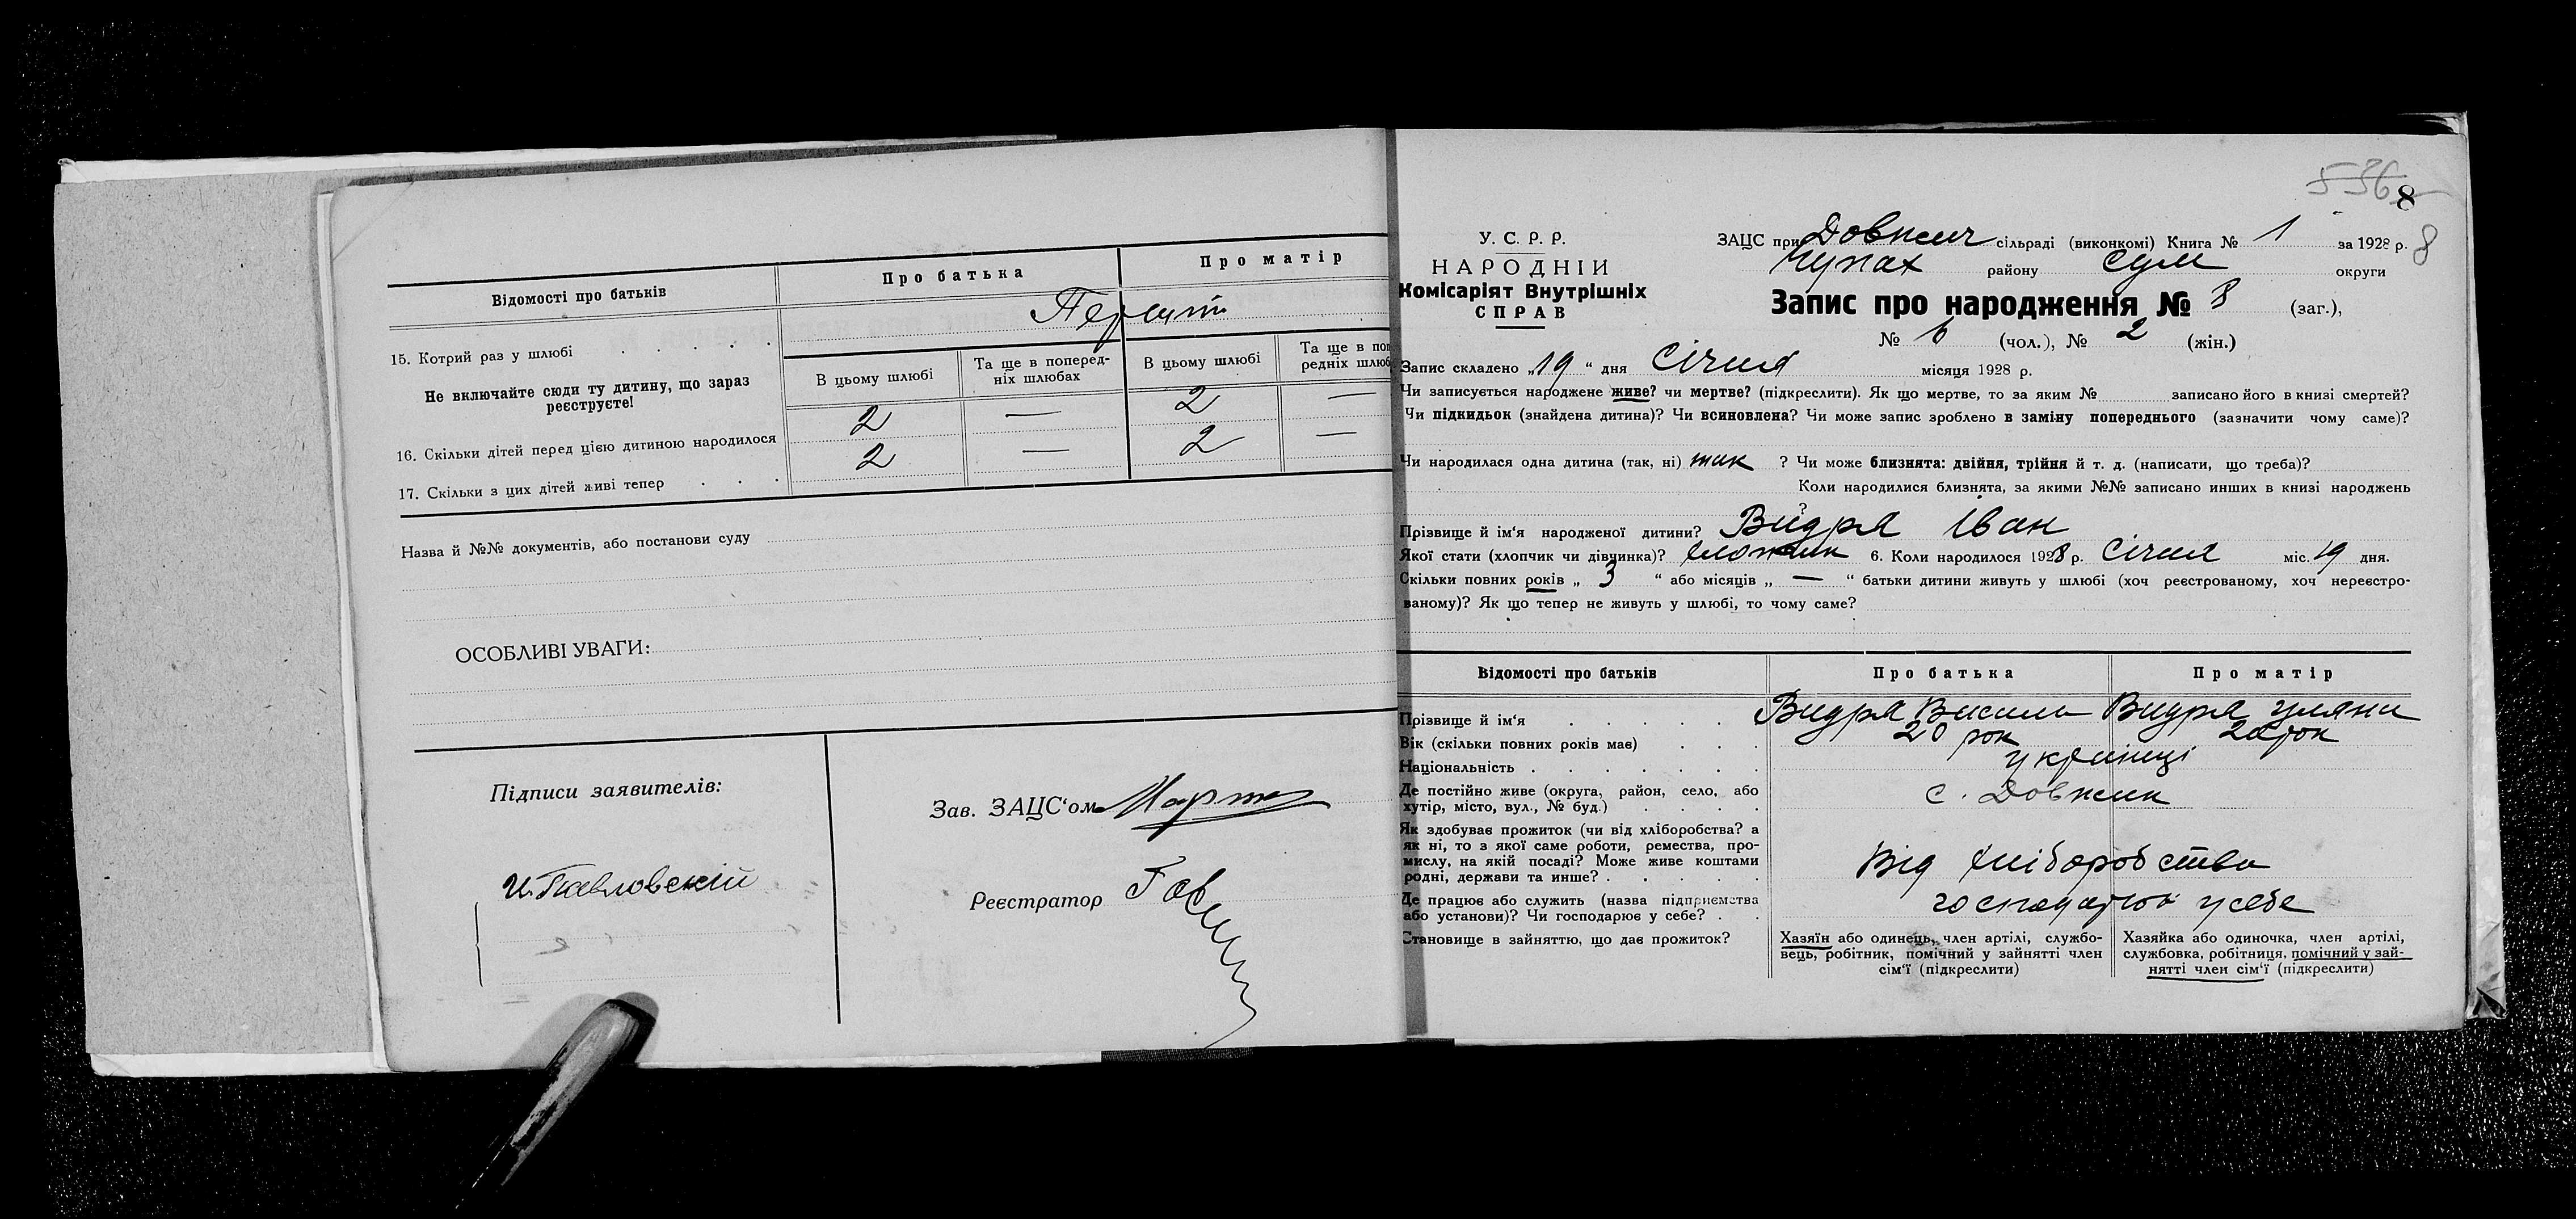 Відомості про батьків
Про батька
Про матір
Перший
15. Котрий раз у шлюбі
Не включайте сюди ту дитину, що зараз
реєструєте!
В цьому шлюбі
Та ще в поперед-
ніх шлюбах
В цьому шлюбі
Та ще в поп
редніх шлюб
16. Скільки дітей перед цією дитиною народилося 2 — 2 —
17. Скільки з цих дітей живі тепер 2 — 2 —
Назва й №№ документів, або постанови суду
ОСОБЛИВІ УВАГИ:
Підписи заявителів:
И. Павловскій
Зав. ЗАЦС‘ом
Реєстратор
536
8
8
У. С. Р. Р.
НАРОДНІЙ
Комісаріят Внутрішніх
СПРАВ
ЗАЦС при Довжич сільраді (виконкомі) Книга № 1 за 1928 р.
Чупах району Сум округи
Запис про народження № 8 (заг.),
№ 6 (чол.), № 2 (жін.)
Запис складено „19“ дня Січня місяця 1928 р.
Чи записується народжене живе? чи мертве? (підкреслити). Як що мертве, то за яким № записано його в книзі смертей?
Чи підкидьок (знайдена дитина)? Чи всиновлена? Чи може запис зроблено в заміну попереднього (зазначити чому саме)?
Чи народилася одна дитина (так, ні) так ? Чи може близнята: двійня, трійня й т. д. (написати, що треба)?
Коли народилися близнята, за якими №№ записано инших в книзі народжень
?
Прізвище й ім‘я народженої дитини? Видря Іван
Якої стати (хлопчик чи дівчинка)? 6. Коли народилося 1928 р. Січня міс. 19 дня.
Скільки повних років „ 3 “ або місяців „ — “ батьки дитини живуть у шлюбі (хоч реєстрованому, хоч нереєстро-
ваному)? Як що тепер не живуть у шлюбі, то чому саме?
Відомості про батьків
Про батька
Про матір
Прізвище й ім‘я Видря Василь Видря Уляна
Вік (скільки повних років має) 20 рок рок
Національність українці
Де постійно живе (округа, район, село, або
хутір, місто, вул., № буд.) с. Довжик
Як здобуває прожиток (чи від хліборобства? а
як ні, то з якої саме роботи, ремества, про-
мислу, на якій посаді? Може живе коштами
родні, держави та инше? Від хліборобства
Де працює або служить (назва підприємства
або установи)? Чи господарює у себе? господарює у себе
Становище в зайняттю, що дає прожиток?
Хазяїн або одинець, член артілі, службо-
вець, робітник, помічний у зайнятті член
сім‘ї (підкреслити)
Хазяйка або одиночка, член артілі,
службовка, робітниця, помічний у зай-
нятті член сім‘ї (підкреслити)